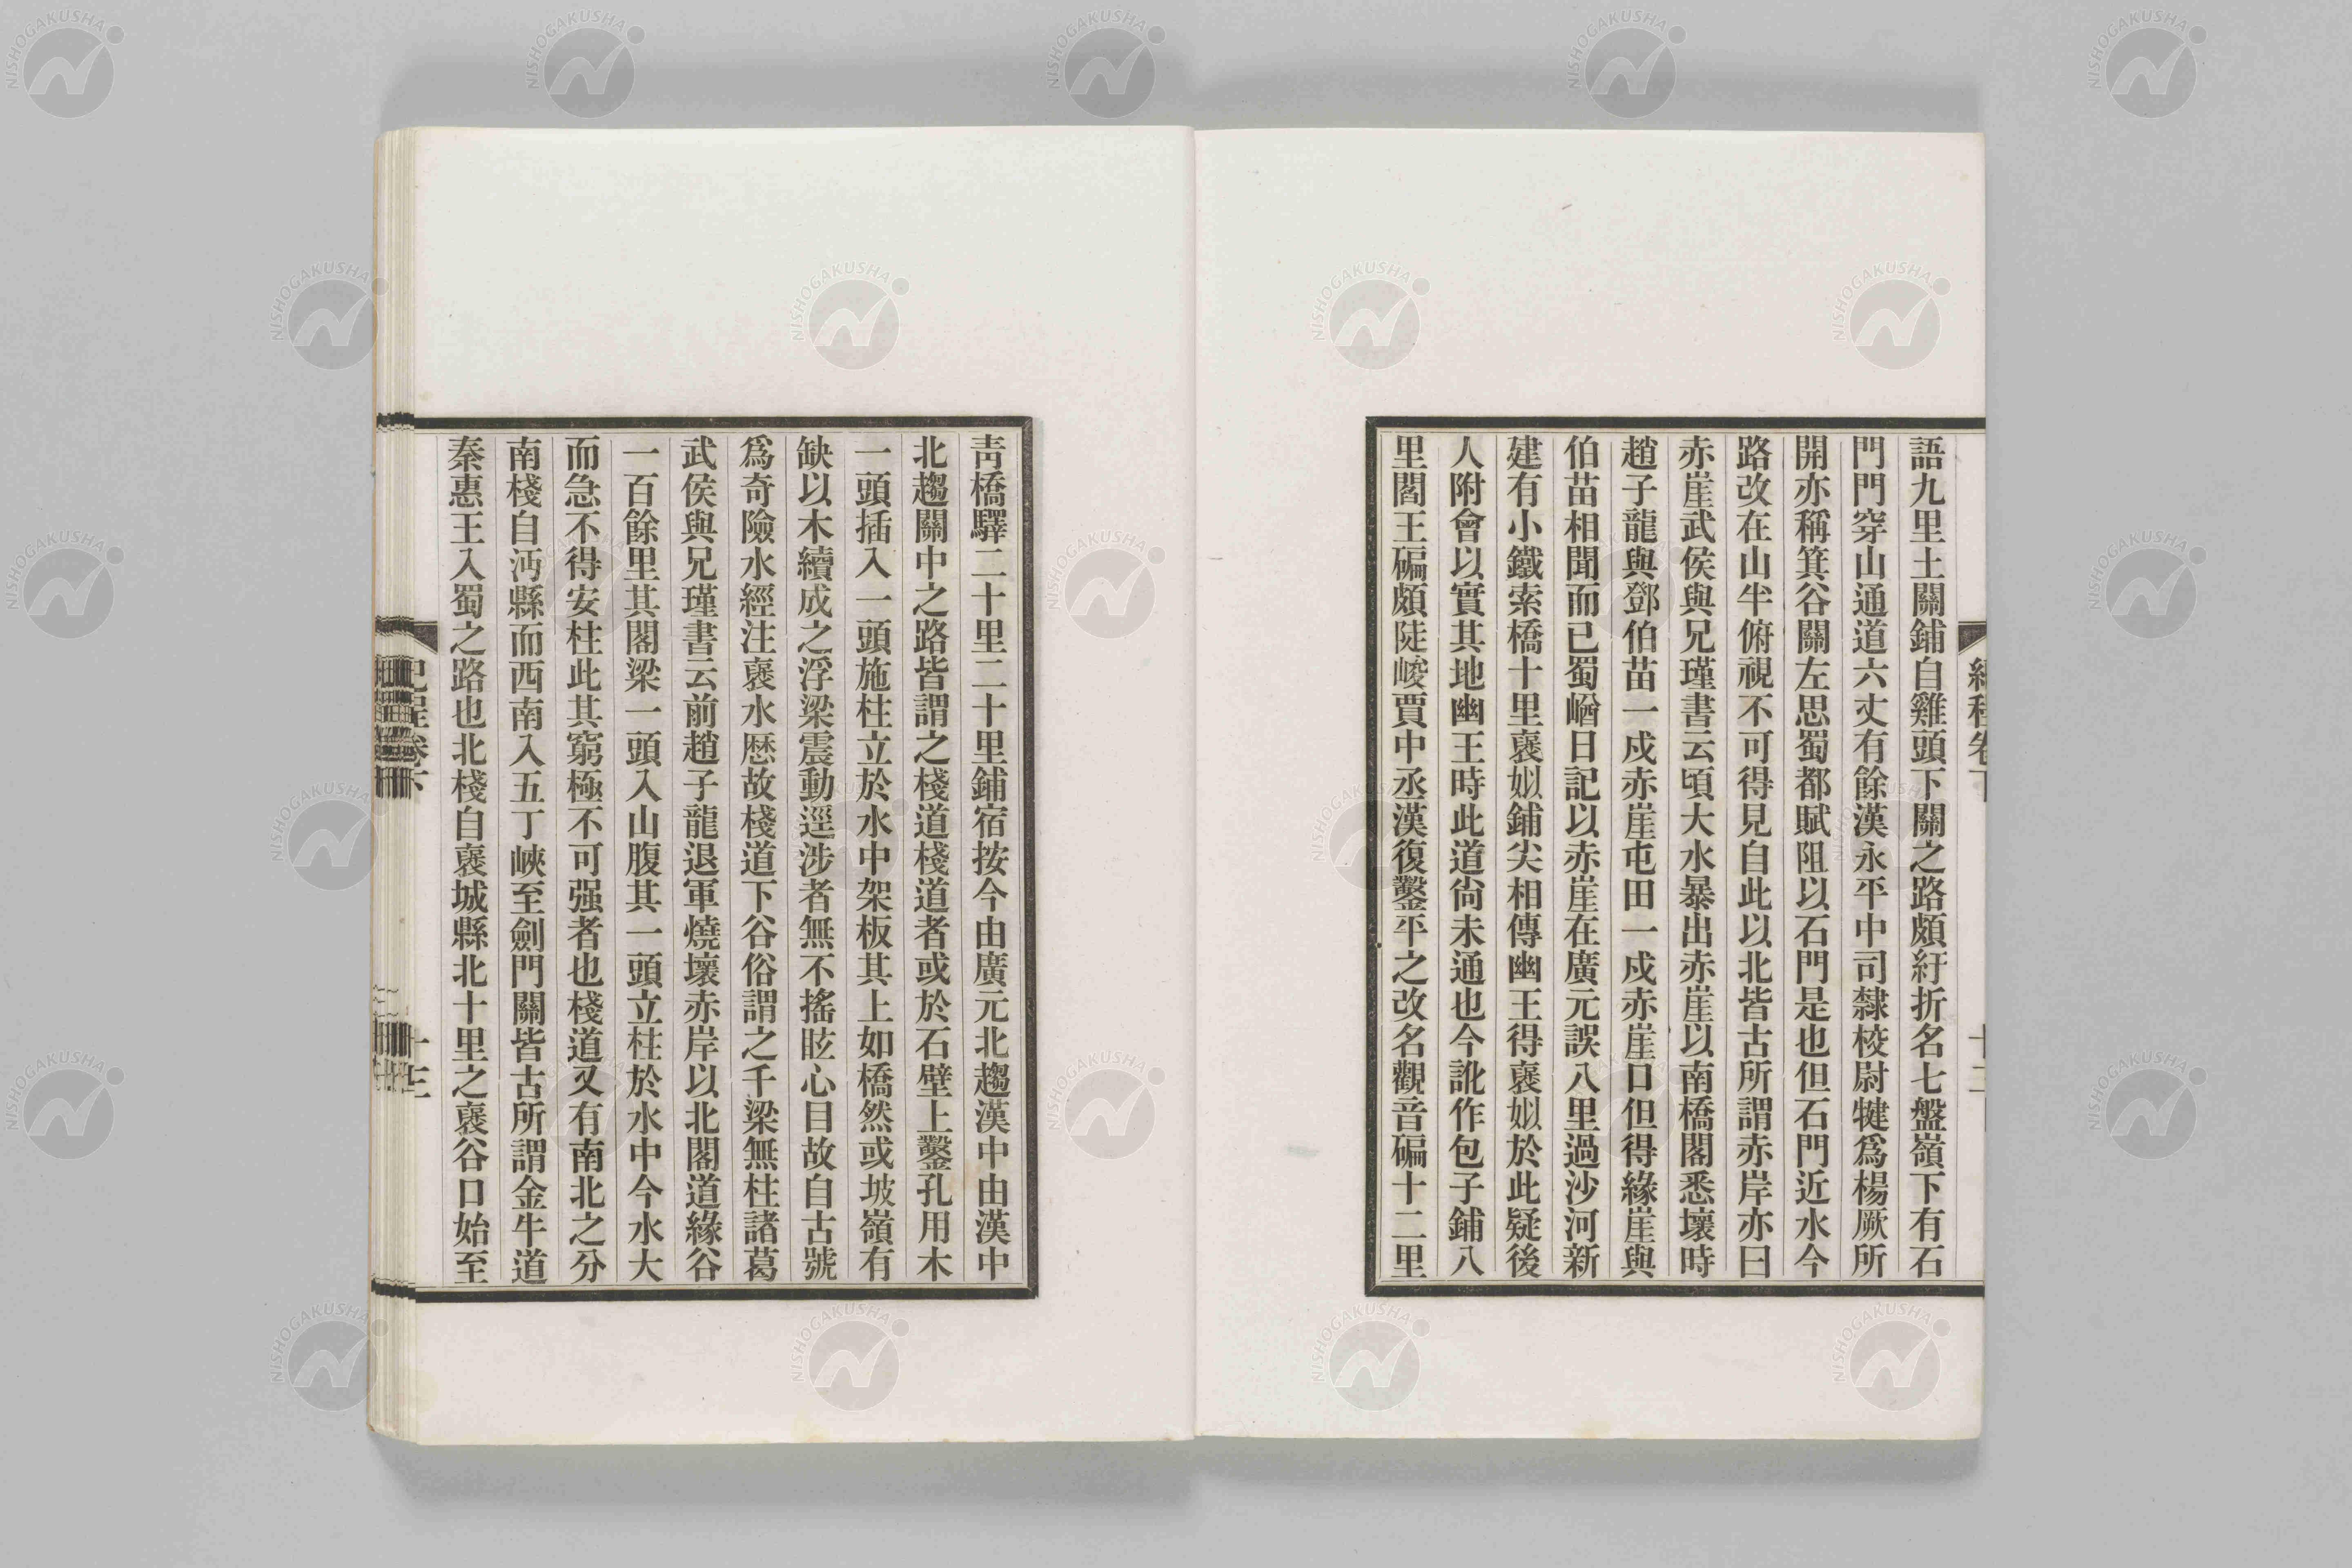 語九里土關鋪自雞頭下關之路頗紆折名七盤嶺下有石
門門穿山通道六丈有餘漢永平中司隸校尉犍爲楊厥所
開亦稱箕谷關左思蜀都賦阻以石門是也但石門近水今
路改在山半俯視不可得見自此以北皆古所謂赤岸亦曰
赤崖武侯與兄瑾書云頃大水暴出赤崖以南橋閣悉壞時
趙子龍與鄧伯苗一戍赤崖屯田一戍赤崖口但得緣崖與
伯苗相聞而已蜀𬨎日記以赤崖在廣元誤八里過沙河新
建有小鐵索橋十里褒姒鋪尖相傳幽王得褒姒於此疑後
人附會以實其地幽王時此道尚未通也今訛作包子鋪八
里閻王碥頗陡峻賈中丞漢復鑿平之改名觀音碥十二里
青橋驛二十里二十里鋪宿按今由廣元北趨漢中由漢中
北趨關中之路皆謂之棧道棧道者或於石壁上鑿孔用木
一頭插入一頭施柱立於水中架板其上如橋然或坡嶺有
缺以木續成之浮梁震動逕涉者無不搖眩心目故自古號
爲奇險水經注褒水歴故棧道下谷俗謂之千梁無柱諸葛
武侯與兄瑾書云前趙子龍退軍燒壞赤岸以北閣道緣谷
一百餘里其閣梁一頭入山腹其一頭立柱於水中今水大
而急不得安柱此其窮極不可强者也棧道又有南北之分
南棧自沔縣而西南入五丁峽至劍門關皆古所謂金牛道
秦惠王入蜀之路也北棧自褒城縣北十里之褒谷口始至
程卷下
十三
NISHOGAKUSHA